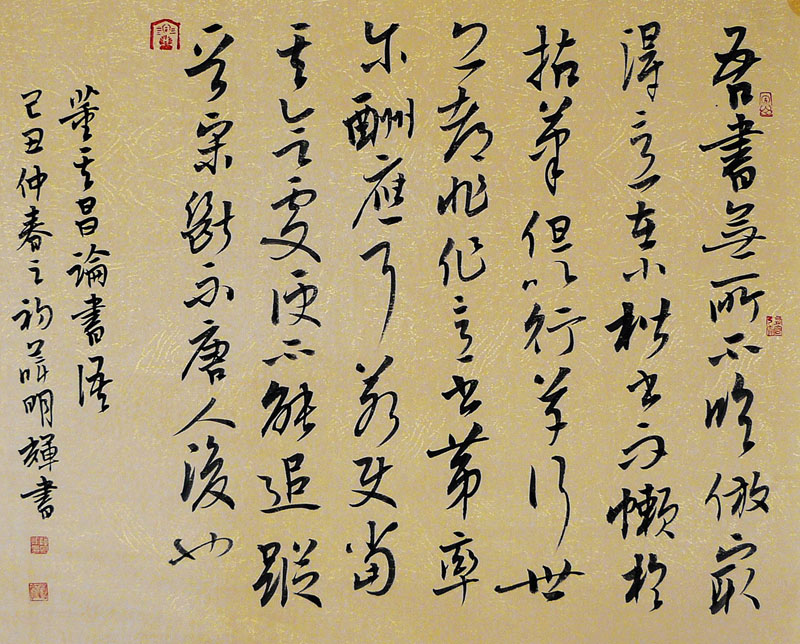 吾書無所不臨倣最
得意在小楷書而懶於
拈筆但以行草行世
亦都非作意書第率
尔酬應耳若使當
其合處便不能追蹤
晉宋斷不唐人後也
董其昌論書語
己丑仲春之初明輝書